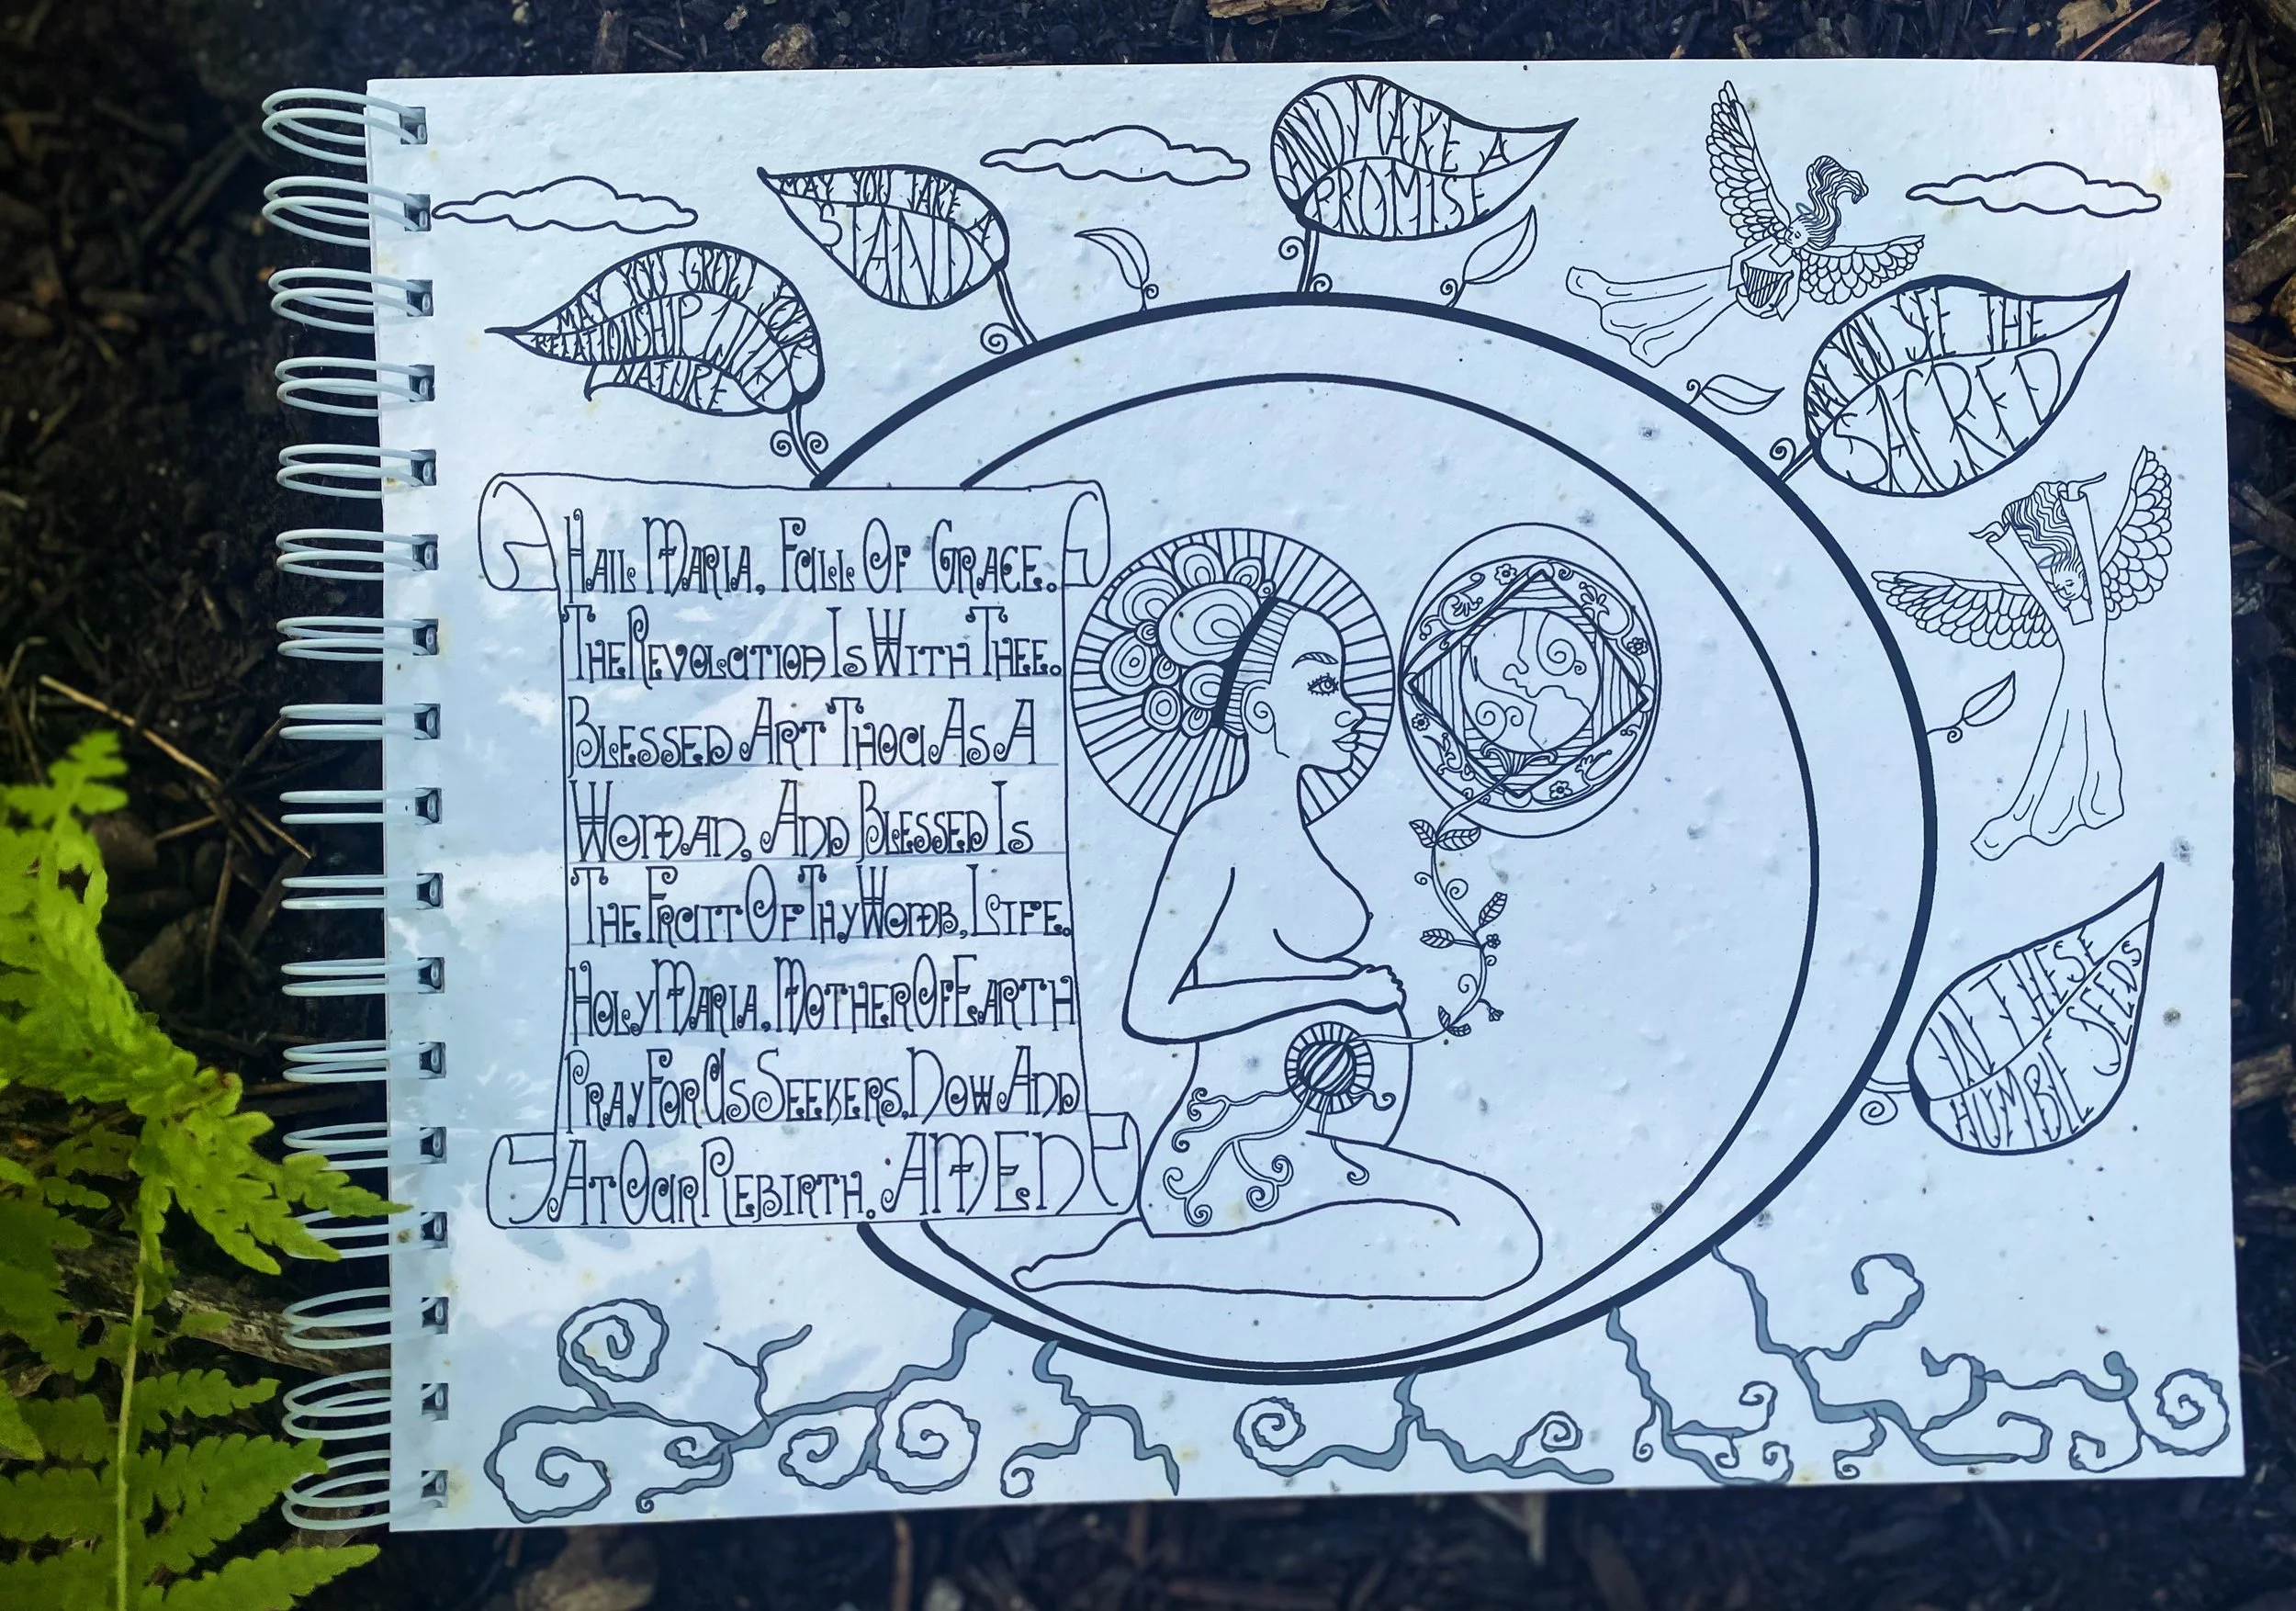 MAY YOU GROW YOUR
RELATIONSHIP WITH
NATURE
MAY YOU TAKE A
STAND
AND MAKE A
PROMISE
MAY YOU SEE THE
SACRED
IN THESE
HUMBLE SEEDS
HAIL MARIA, FULL OF GRACE.
THE REVOLUTION IS WITH THEE.
BLESSED ART THOU AS A
WOMAN, AND BLESSED IS
THE FRUIT OF THY WOMB, LIFE.
HOLY MARIA, MOTHER OF EARTH
PRAY FOR US SEEKERS, NOW AND
AT OUR REBIRTH. AMEN